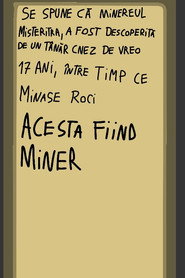 SE SPUNE CĂ MINEREUL
MISTERITRA, A FOST DESCOPERITĂ
DE UN TÂNĂR CNEZ DE VREO
17 ANI, ÎNTRE TIMP CE
MINASE ROCI
ACESTA FIIND
MINER